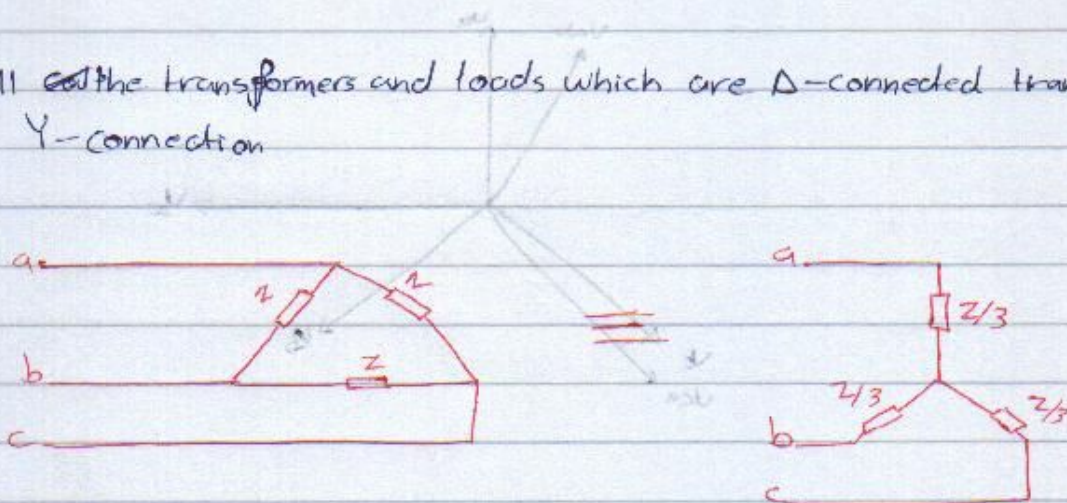 ll the transformers and loads which are Δ-connected tran
Y-connection
a
z
z
a
z/3
b
z
z/3
z/3
b
c
c